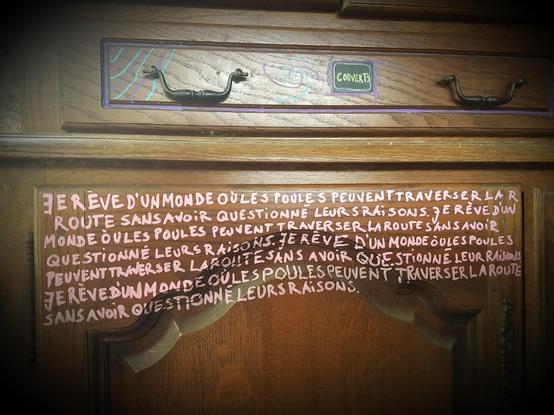 COUVERTS
JE RÊVE D'UN MONDE OÙ LES POULES PEUVENT TRAVERSER LA R
ROUTE SANS AVOIR QUESTIONNÉ LEURS RAISONS. JE RÊVE D'UN
MONDE OÙ LES POULES PEUVENT TRAVERSER LA ROUTE SANS AVOIR
QUESTIONNÉ LEURS RAISONS. JE RÊVE D'UN MONDE OÙ LES POULES
PEUVENT TRAVERSER LA ROUTE SANS AVOIR QUESTIONNÉ LEURS RAISONS
JE RÊVE D'UN MONDE OÙ LES POULES PEUVENT TRAVERSER LA ROUTE
SANS AVOIR QUESTIONNÉ LEURS RAISONS.